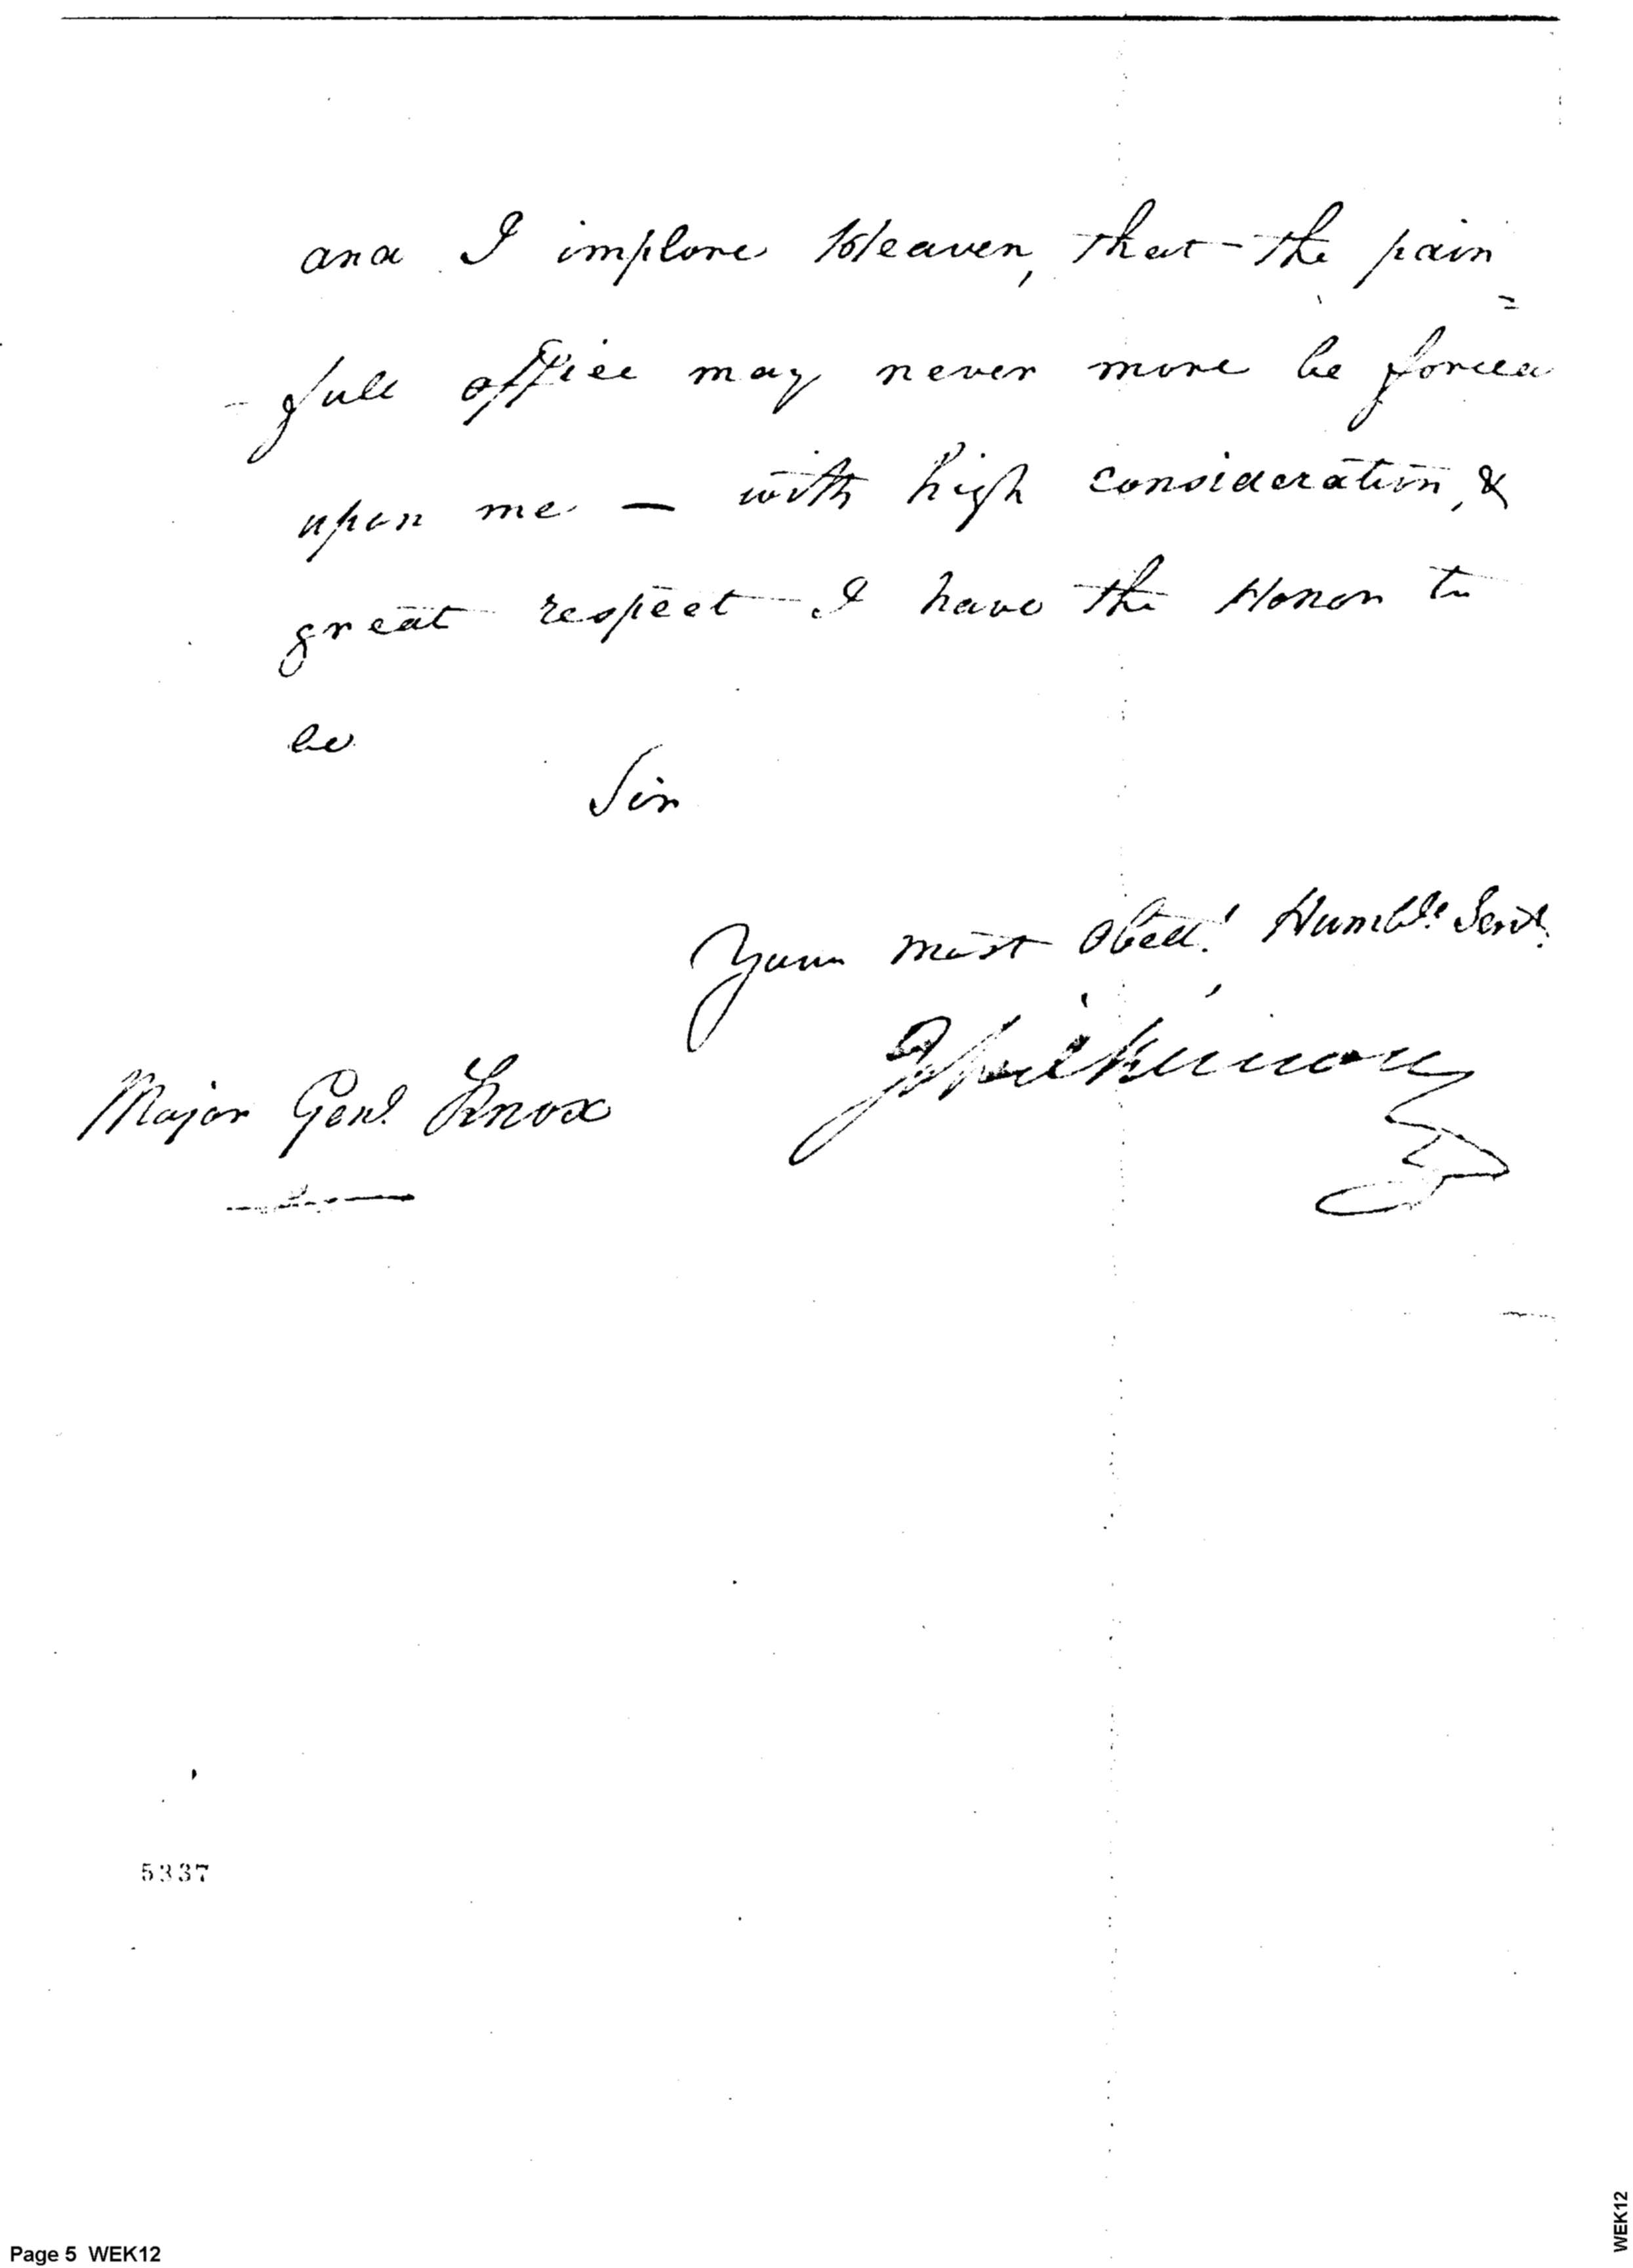 and I implore Heaven, that the pain=
-full office may never more be forced
upon me — with high consideration, &
great respect I have the Honor to
be
Sir
Your most Obedt. Humble. Servt.
JWilkinson
Major Genl. Knox
5337
Page 5 WEK12
WEK12